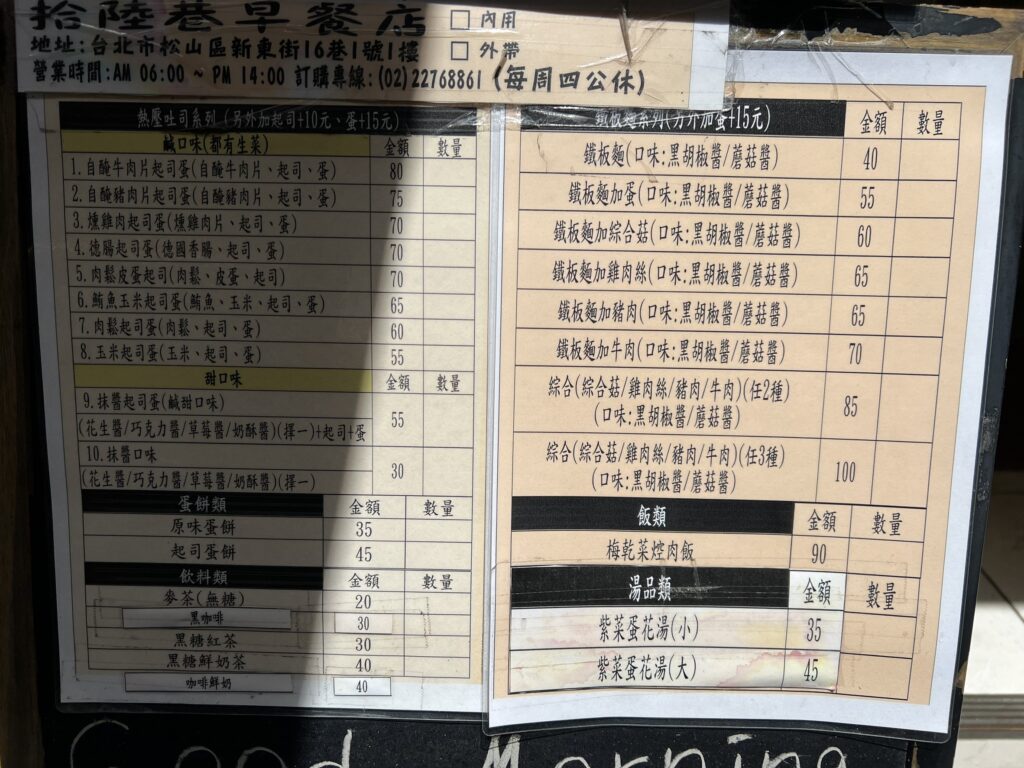 拾陸巷早餐店 □ 內用
地址:台北市松山區新東街16巷1號1樓 □ 外帶
營業時間:AM 06:00 ~ PM 14:00 訂購專線:(02)22768861 (每周四公休)
熱壓吐司系列 (另外加起司+10元、蛋+15元)
鹹口味(都有生菜) 金額 數量
1.自醃牛肉片起司蛋(自醃牛肉片、起司、蛋) 80
2.自醃豬肉片起司蛋(自醃豬肉片、起司、蛋) 75
3.燻雞肉起司蛋(燻雞肉片、起司、蛋) 70
4.德腸起司蛋(德國香腸、起司、蛋) 70
5.肉鬆皮蛋起司(肉鬆、皮蛋、起司) 70
6.鮪魚玉米起司蛋(鮪魚、玉米、起司、蛋) 65
7.肉鬆起司蛋(肉鬆、起司、蛋) 60
8.玉米起司蛋(玉米、起司、蛋) 55
甜口味 金額 數量
9.抹醬起司蛋(鹹甜口味)
(花生醬/巧克力醬/草莓醬/奶酥醬)(擇一)+起司+蛋 55
10.抹醬口味
(花生醬/巧克力醬/草莓醬/奶酥醬)(擇一) 30
蛋餅類 金額 數量
原味蛋餅 35
起司蛋餅 45
飲料類 金額 數量
麥茶(無糖) 20
黑咖啡 30
黑糖紅茶 30
黑糖鮮奶茶 40
咖啡鮮奶 40
鐵板麵系列(另外加蛋+15元) 金額 數量
鐵板麵(口味:黑胡椒醬/蘑菇醬) 40
鐵板麵加蛋(口味:黑胡椒醬/蘑菇醬) 55
鐵板麵加綜合菇(口味:黑胡椒醬/蘑菇醬) 60
鐵板麵加雞肉絲(口味:黑胡椒醬/蘑菇醬) 65
鐵板麵加豬肉(口味:黑胡椒醬/蘑菇醬) 65
鐵板麵加牛肉(口味:黑胡椒醬/蘑菇醬) 70
綜合(綜合菇/雞肉絲/豬肉/牛肉)(任2種)
(口味:黑胡椒醬/蘑菇醬) 85
綜合(綜合菇/雞肉絲/豬肉/牛肉)(任3種)
(口味:黑胡椒醬/蘑菇醬) 100
飯類 金額 數量
梅乾菜焢肉飯 90
湯品類 金額 數量
紫菜蛋花湯(小) 35
紫菜蛋花湯(大) 45
Good Morning